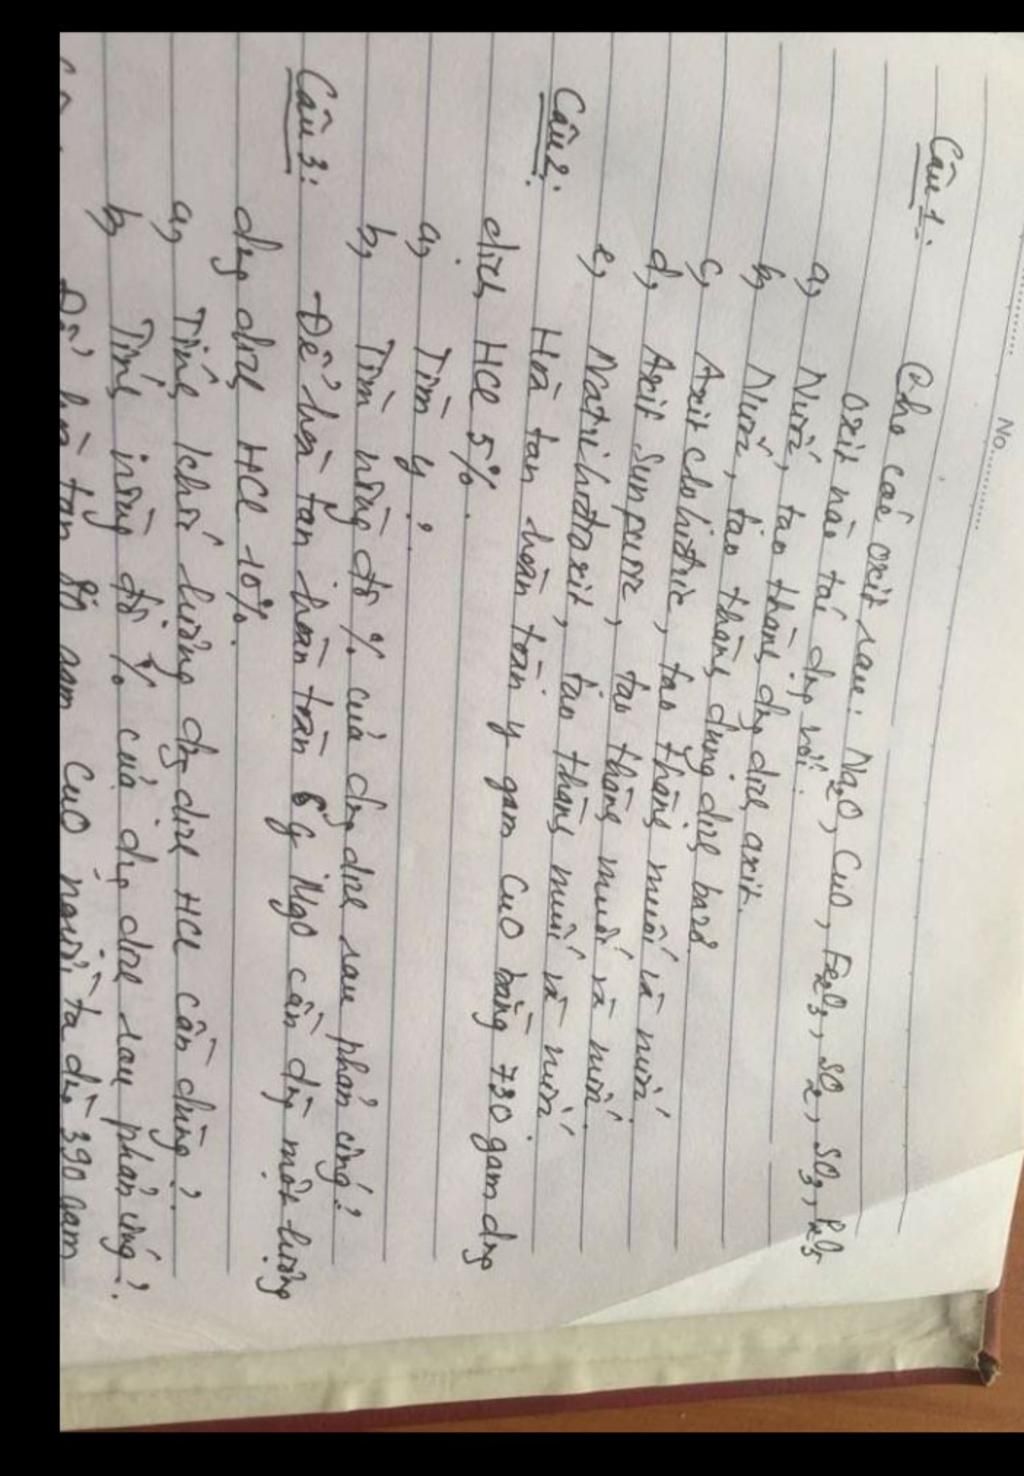 No.
Câu 1: Cho các oxit sau: Na2O, CuO, Fe2O3, SO2, SO3, P2O5
oxit nào tác dụng với:
a, Nước, tạo thành dung dịch axit.
b, Nước, tạo thành dung dịch bazơ
c, Axit clohiđric, tạo thành muối và nước.
d, Axit Sunfuric, tạo thành muối và nước.
e, Natri hiđroxit, tạo thành muối và nước.
Câu 2: Hòa tan hoàn toàn y gam CuO bằng 730 gam dung
dịch HCl 5%.
a, Tìm y?
b, Tìm nồng độ % của dung dịch sau phản ứng?
Câu 3: Để hòa tan hoàn toàn 6g MgO cần dùng một lượng
dung dịch HCl 10%.
a, Tính khối lượng dung dịch HCl cần dùng?
b, Tính nồng độ % của dung dịch sau phản ứng?
Để hòa tan 80 gam CuO người ta dùng 390 gam